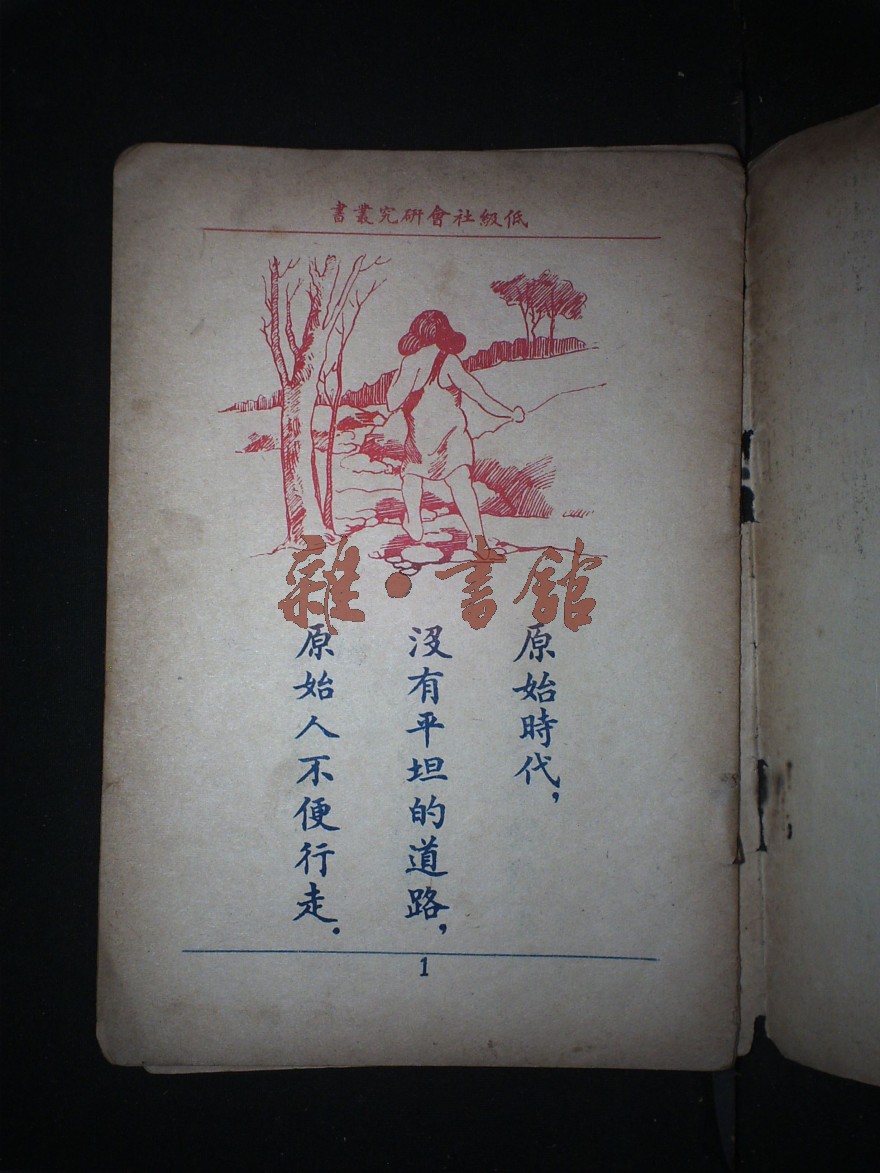 低級社會研究叢書
雜·書館
原始時代，
沒有平坦的道路，
原始人不便行走．
1